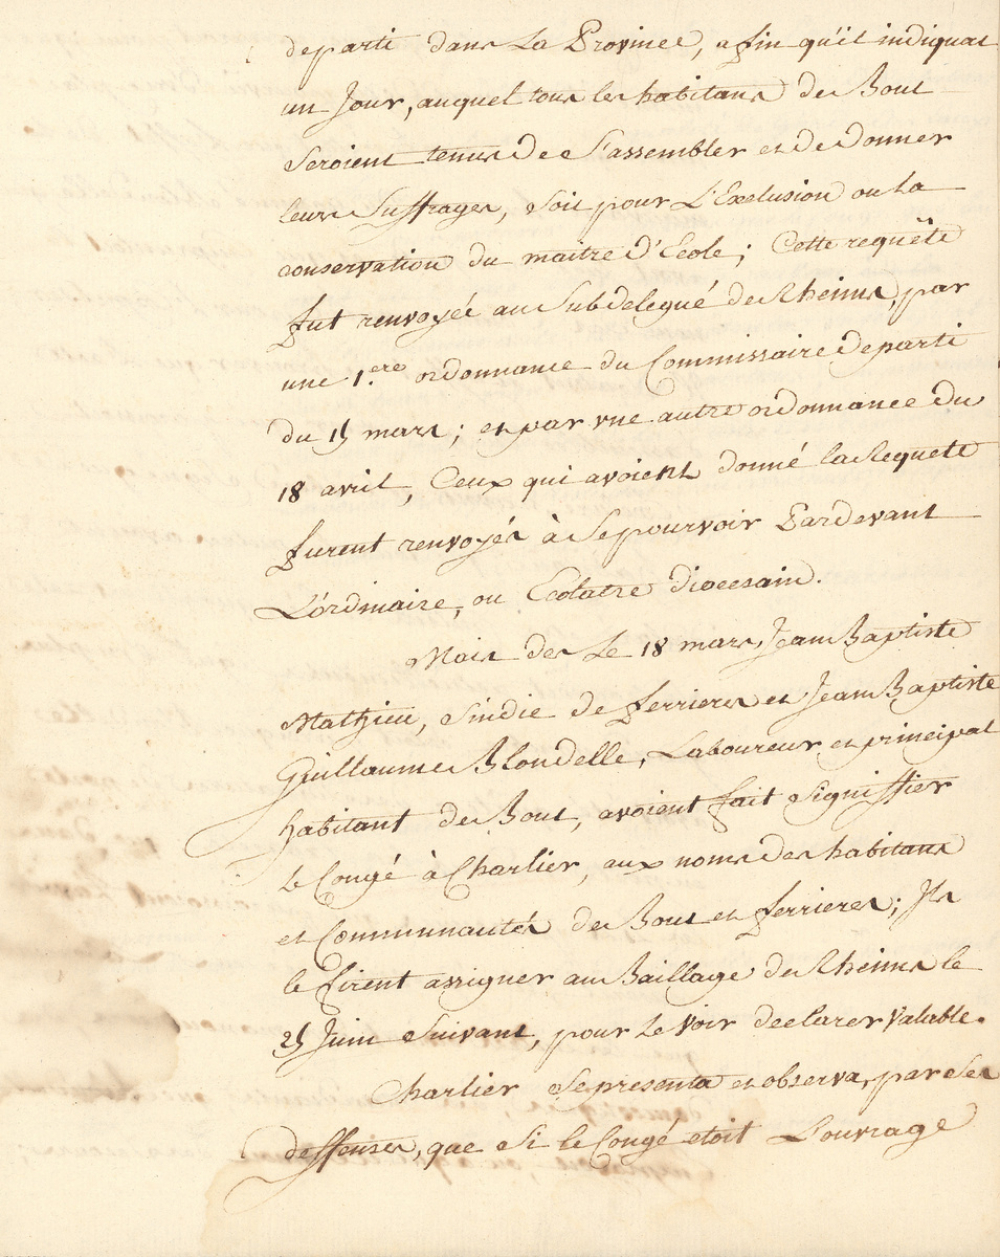 departi dans La Province, afin qu'il indiquat
un Jour, auquel tous les habitans de Bout
Seroient tenus de S'assembler et de donner
leurs Suffrages, Soit pour L'Exclusion ou La
conservation du maitre d'Ecole; Cette requête
fut renvoyée au Subdelegué de Rheims, par
une 1.ere ordonnance du Commissaire departi
du 15 mars; et par une autre ordonnance du
18 avril, Ceux qui avoient donné la Requete
furent renvoyés à Se pourvoir Pardevant
L'órdinaire, ou Ecolatre diocesain.
Mais des Le 18 mars, Jean Baptiste
Mathieu, Sindic de ferrieres et Jean Baptiste
Guillaume Blondelle, Laboureur et principal
habitant de Bout, avoient fait Signiffier
Le Congé à Charlier, aux noms des habitans
et Communautés de Bout et ferrieres; Ils
le firent assigner au Baillage de Rheims le
25 Juin Suivant, pour Le voir declarer valable.
Charlier Se presenta et observa, par Ses
deffenses, que Si le Congé etoit L'ouvrage